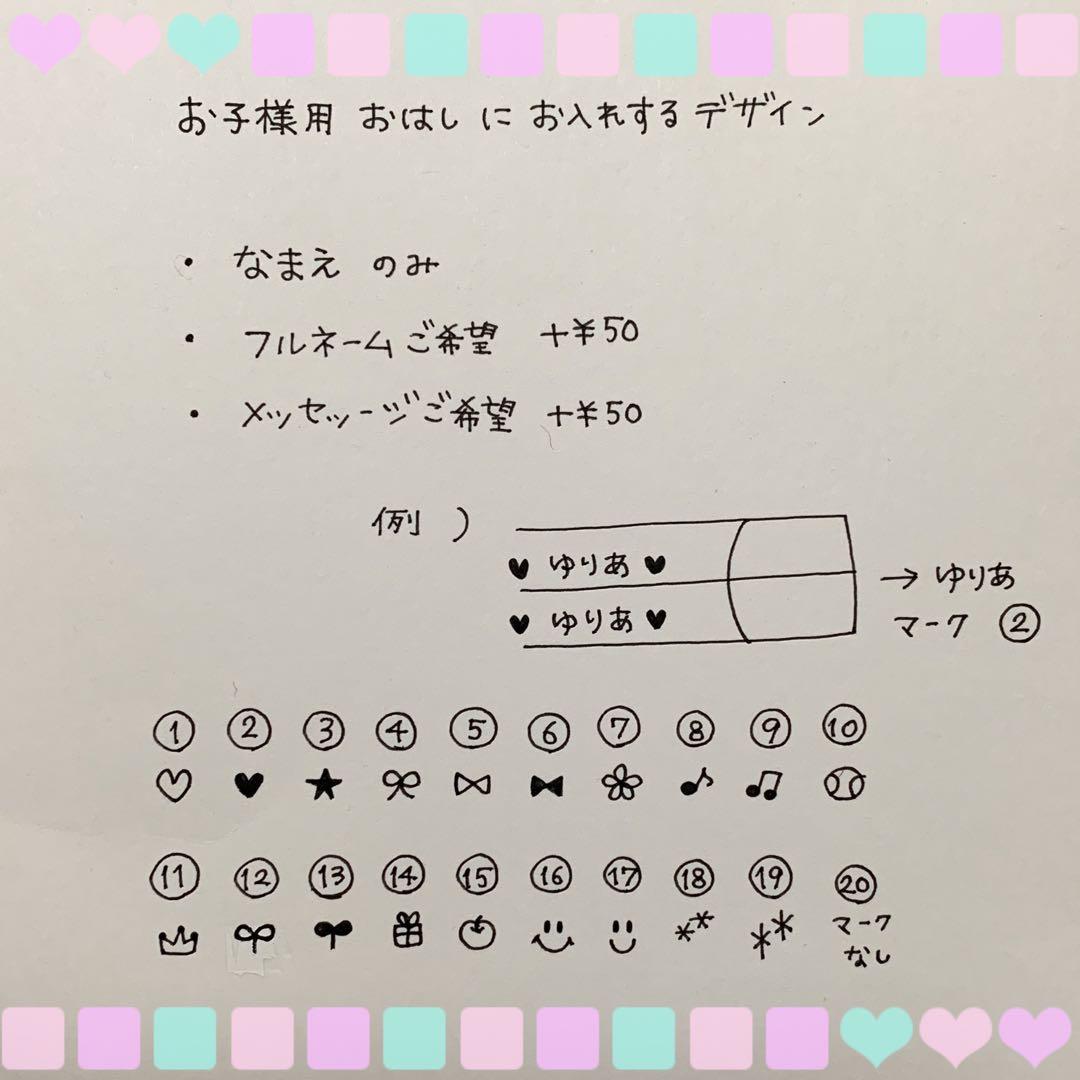 お子様用 おはしに お入れするデザイン
・ なまえ のみ
・ フルネームご希望 +¥50
・ メッセージご希望 +¥50
例)
♥ ゆりあ ♥
♥ ゆりあ ♥
→ ゆりあ
マーク ②
① ② ③ ④ ⑤ ⑥ ⑦ ⑧ ⑨ ⑩
⑪ ⑫ ⑬ ⑭ ⑮ ⑯ ⑰ ⑱ ⑲ ⑳
マーク
なし